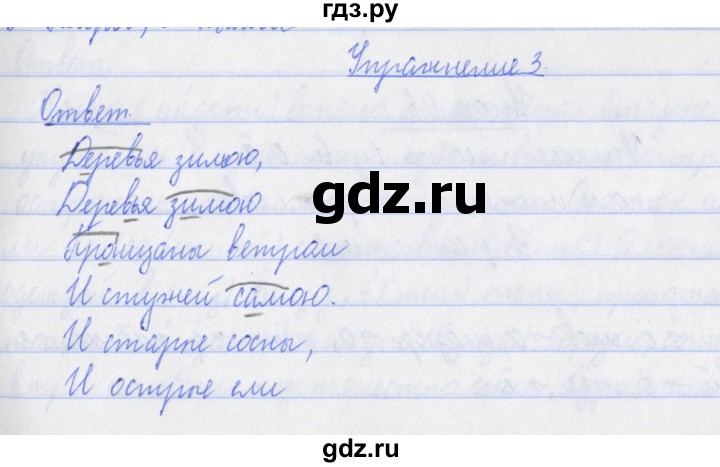 гдз.ру
Упражнение 3.
Ответ.
Деревья зимою,
Деревья зимою
Пронизаны ветрам
И стужей самою.
И старые сосны,
И острые ели
gdz.ru
gdz.ru